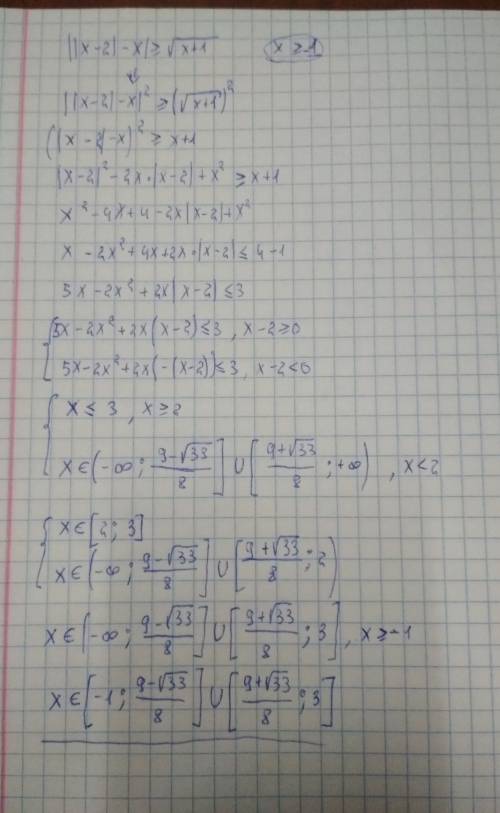 ||x-2|-x|≥√(x+1) x≥1
||x-2|-x|²≥(√(x+1))²
(|x-2|-x)²≥x+1
|x-2|²-2x·|x-2|+x²≥x+1
x²-4x+4-2x|x-2|+x²
x-2x²+4x+2x·|x-2|≤4-1
5x-2x²+2x|x-2|≤3
{5x-2x²+2x(x-2)≤3, x-2≥0
5x-2x²+2x(-(x-2))≤3, x-2<0
{x≤3, x≥2
x∈(-∞; (9-√33)/8]∪[(9+√33)/8; +∞), x<2
{x∈[2; 3]
x∈(-∞; (9-√33)/8]∪[(9+√33)/8; 2)
x∈(-∞; (9-√33)/8]∪[(9+√33)/8; 3], x≥-1
x∈[-1; (9-√33)/8]∪[(9+√33)/8; 3]